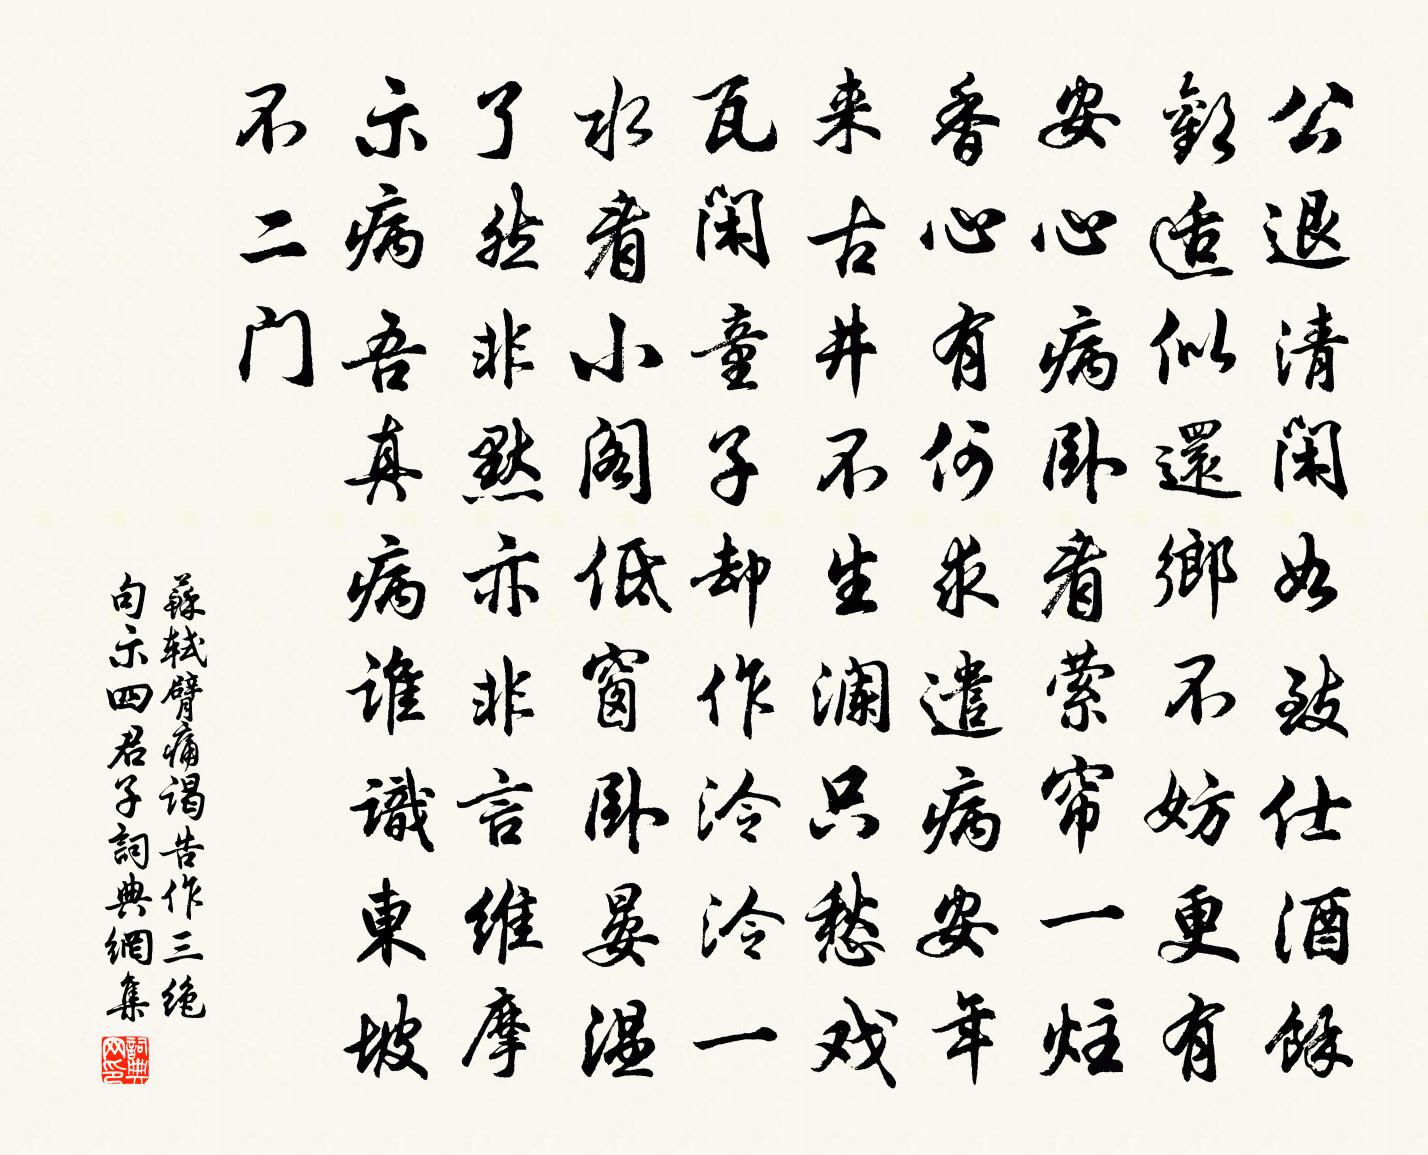 公退清闲如致仕酒餘
歡适似還鄉不妨更有
安心病卧看萦帘一炷
香心有何求遣病安年
来古井不生澜只愁戏
瓦闲童子却作泠泠一
水看小阁低窗卧晏温
了然非默亦非言维摩
示病吾真病谁識東坡
不二门
蘇轼臂痛谒告作三绝
句示四君子詞典網集
詞典网印